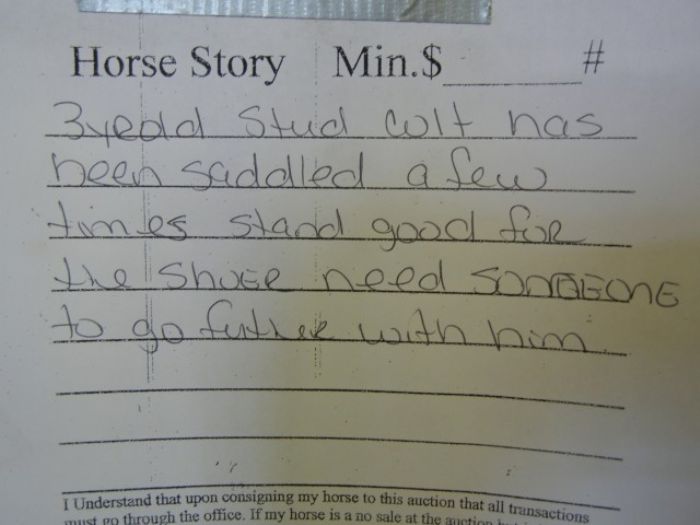 Horse Story Min.$ #
3yeold Stud Colt has
been saddled a few
times stand good for
the Shoer need SOMEONE
to go futher with him
I Understand that upon consigning my horse to this auction that all transactions
must go through the office. If my horse is a no sale at the auction